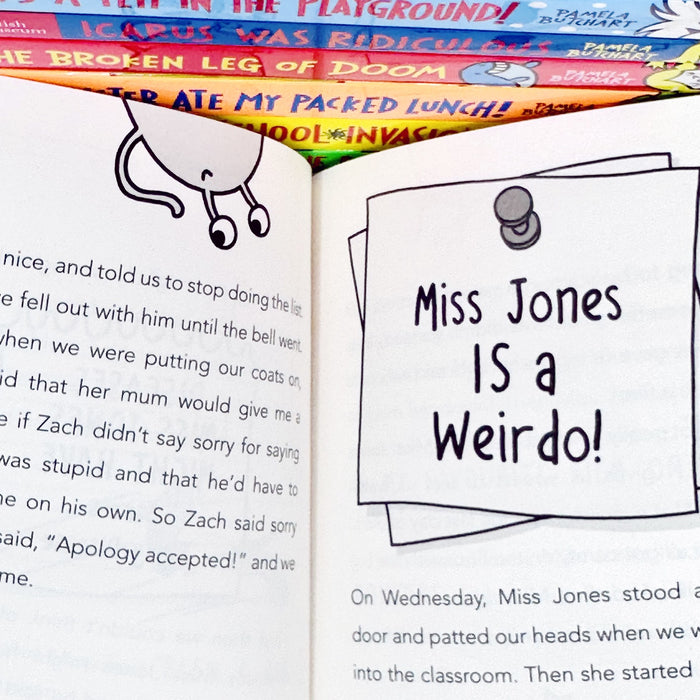 A YETI IN THE PLAYGROUND!
PAMELA BUTCHART
ICARUS WAS RIDICULOUS
PAMELA BUTCHART
THE BROKEN LEG OF DOOM
PAMELA BUTCHART
ATE MY PACKED LUNCH!
PAMELA
nice, and told us to stop doing the list
fell out with him until the bell went
when we were putting our coats on,
that her mum would give me a
if Zach didn't say sorry for saying
was stupid and that he'd have to
on his own. So Zach said sorry
said, "Apology accepted!" and we
me.
Miss Jones
IS a
Weirdo!
On Wednesday, Miss Jones stood
door and patted our heads when we
into the classroom. Then she started